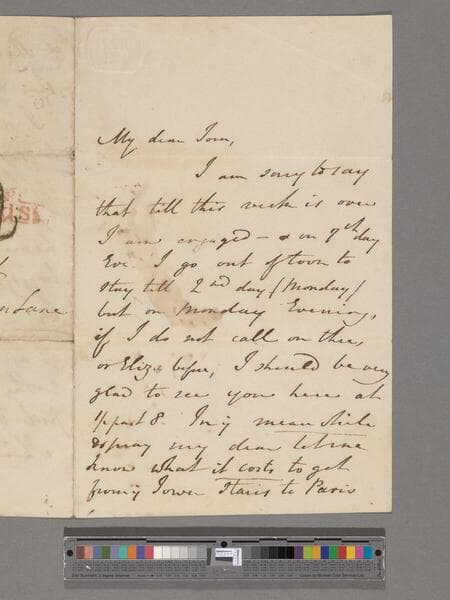 My dear Tom,
I am sorry to say
that till this week is over
I am engaged – & on 7th day
Eve. I go out of town to
stay till 2nd day (Monday)
but on Monday Evening,
if I do not call on thee,
or Eliza before, I should be very
glad to see you here at
1/2 past 8. In ye mean while
pray my dear let me
know what it costs to get
from ye Tower Stairs to Paris
n Lane